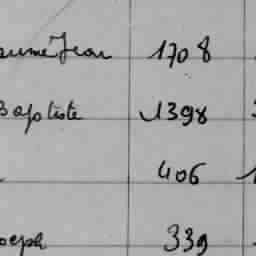 aume Jean 1708
Baptiste 1398
406
oseph 339